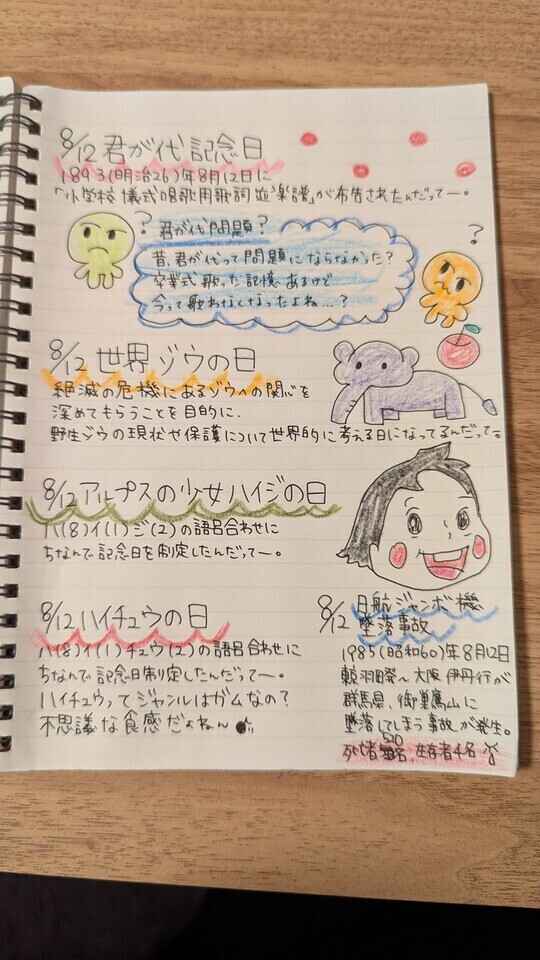 8/12 君が代記念日
1893(明治26)年8月12日に
「小学校儀式唱歌用歌詞並楽譜」が布告されたんだってー。
?
君が代問題?
昔、君が代って問題にならなかった?
卒業式歌った記憶あるけど
今って歌わなくなったよね…?
?
8/12 世界ゾウの日
絶滅の危機にあるゾウへの関心を
深めてもらうことを目的に、
野生ゾウの現状や保護について世界的に考える日になってるんだって。
8/12 アルプスの少女ハイジの日
ハ(8)イ(1)ジ(2)の語呂合わせに
ちなんで記念日を制定したんだってー。
8/12 ハイチュウの日
ハ(8)イ(1)チュウ(2)の語呂合わせに
ちなんで記念日制定したんだってー。
ハイチュウってジャンルはガムなの?
不思議な食感だよねん
8/12 日航ジャンボ機
墜落事故
1985(昭和60)年8月12日
羽田発〜大阪伊丹行が
群馬県、御巣鷹山に
墜落してしまう事故が発生。
死亡者520名、生存者4名